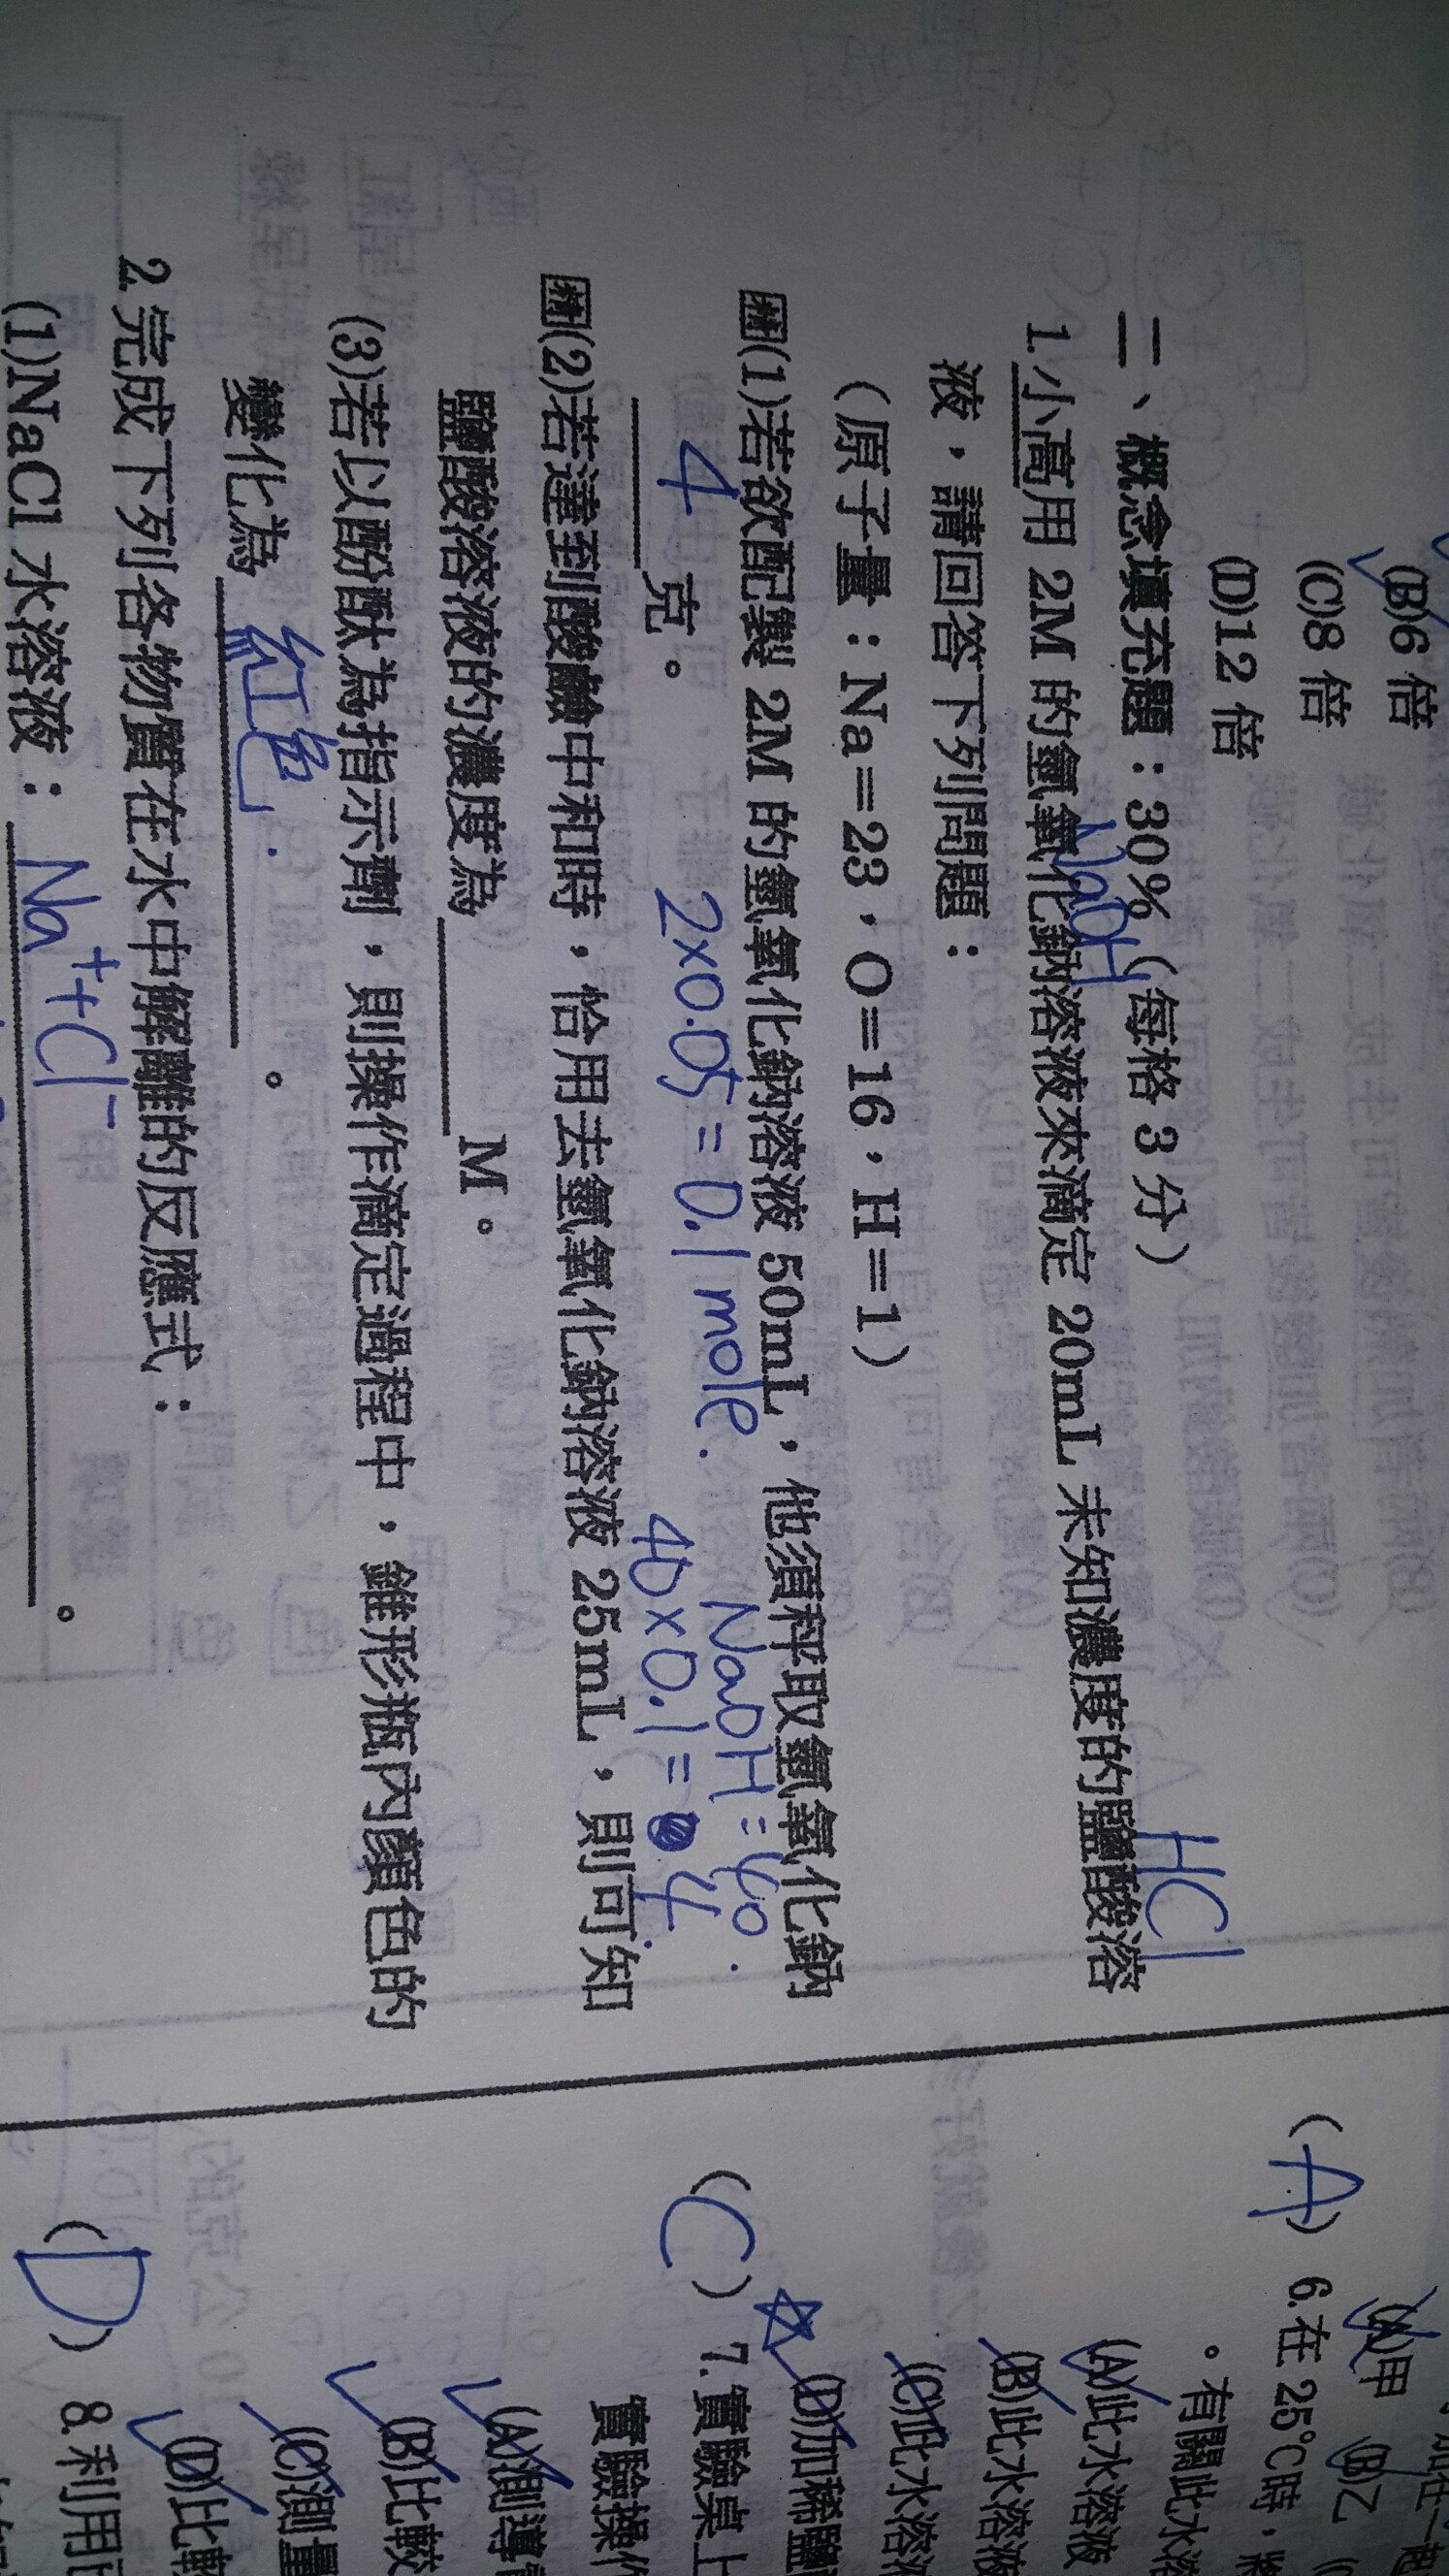 (B)6 倍
(C)8 倍
(D)12 倍
二、概念填充題：30%（每格 3 分）
NaOH
HCl
1.小高用 2M 的氫氧化鈉溶液來滴定 20mL 未知濃度的鹽酸溶
液，請回答下列問題：
（原子量：Na＝23，O＝16，H＝1）
(1)若欲配製 2M 的氫氧化鈉溶液 50mL，他須秤取氫氧化鈉
4 克。
2×0.05 = 0.1 mole.
NaOH = 40.
40×0.1 = 4.
(2)若達到酸鹼中和時，恰用去氫氧化鈉溶液 25mL，則可知
鹽酸溶液的濃度為 M。
(3)若以酚酞為指示劑，則操作滴定過程中，錐形瓶內顏色的
變化為 紅色. 。
2.完成下列各物質在水中解離的反應式：
(1)NaCl 水溶液： Na⁺+Cl⁻ 。
(A)甲 (B)乙
(A) 6.在 25℃時，
。有關此水溶
(A)此水溶液
(B)此水溶液
(C)此水溶
(D)加稀鹽
(C) ☆ 7.實驗桌上
實驗操作
(A)測導
(B)比較
(C)測量
(D)比較
(D) 8.利用